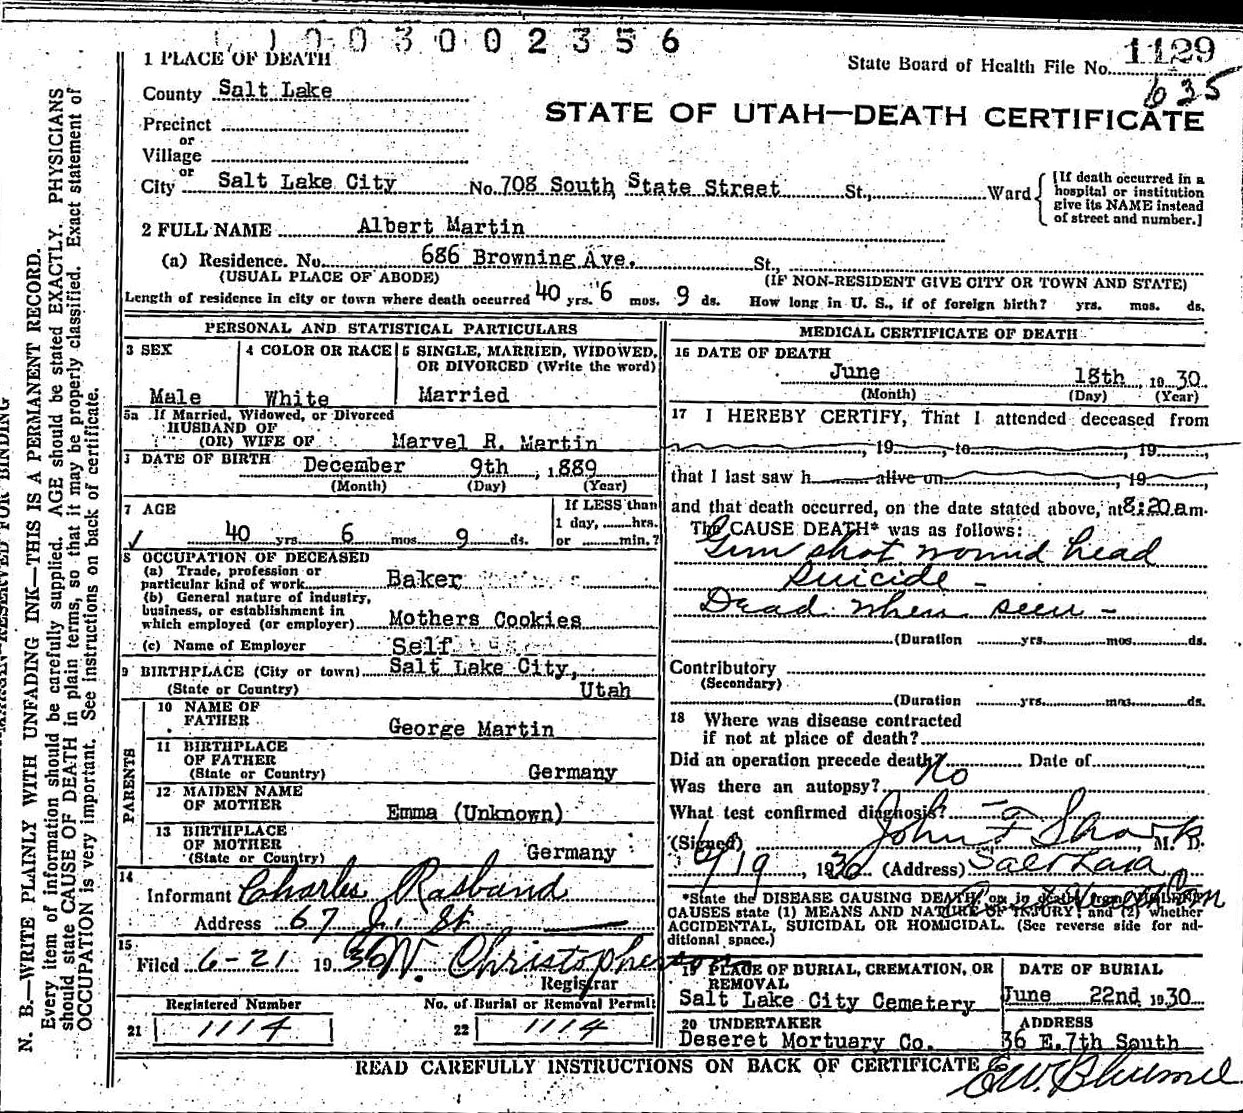 1003002356
1 PLACE OF DEATH
State Board of Health File No. 1129
635
County Salt Lake
STATE OF UTAH—DEATH CERTIFICATE
Precinct
or
Village
or
City Salt Lake City No. 708 South State Street St., Ward
[If death occurred in a hospital or institution give its NAME instead of street and number.]
2 FULL NAME Albert Martin
(a) Residence. No. 686 Browning Ave. St.,
(USUAL PLACE OF ABODE) (IF NON-RESIDENT GIVE CITY OR TOWN AND STATE)
Length of residence in city or town where death occurred 40 yrs. 6 mos. 9 ds. How long in U. S., if of foreign birth? yrs. mos. ds.
PERSONAL AND STATISTICAL PARTICULARS
3 SEX
Male
4 COLOR OR RACE
White
5 SINGLE, MARRIED, WIDOWED,
OR DIVORCED (Write the word)
Married
5a If Married, Widowed, or Divorced
HUSBAND OF
(OR) WIFE OF Marvel R. Martin
DATE OF BIRTH December 9th, 1889
(Month) (Day) (Year)
7 AGE
40 yrs 6 mos 9 ds.
If LESS than
1 day, hrs.
or min.?
8 OCCUPATION OF DECEASED
(a) Trade, profession or
particular kind of work Baker
(b) General nature of industry,
business, or establishment in
which employed (or employer) Mothers Cookies
(c) Name of Employer Self
9 BIRTHPLACE (City or town) Salt Lake City,
(State or Country) Utah
PARENTS
10 NAME OF
FATHER George Martin
11 BIRTHPLACE
OF FATHER
(State or Country) Germany
12 MAIDEN NAME
OF MOTHER Emma (Unknown)
13 BIRTHPLACE
OF MOTHER
(State or Country) Germany
14
Informant Charles Rasband
Address 67 J. St
15
Filed 6-21 1930 W. Christopherson
Registrar
Registered Number
21 1114
No. of Burial or Removal Permit
22 1114
MEDICAL CERTIFICATE OF DEATH
16 DATE OF DEATH
June 18th, 1930
(Month) (Day) (Year)
17 I HEREBY CERTIFY, That I attended deceased from
, 19 , to , 19 ,
that I last saw h alive on , 19 ,
and that death occurred, on the date stated above, at 8:20 a m.
The CAUSE DEATH* was as follows:
Gun shot wound head
Suicide -
Dead when seen -
(Duration yrs. mos. ds.
Contributory
(Secondary)
(Duration yrs. mos. ds.
18 Where was disease contracted
if not at place of death?
Did an operation precede death? No Date of
Was there an autopsy?
What test confirmed diagnosis? —
(Signed) John F Sharp, M. D.
6/19, 1930 (Address) Salt Lake
*State the DISEASE CAUSING DEATH, or in deaths from VIOLENT
CAUSES state (1) MEANS AND NATURE OF INJURY; and (2) whether
ACCIDENTAL, SUICIDAL OR HOMICIDAL. (See reverse side for ad-
ditional space.)
19 PLACE OF BURIAL, CREMATION, OR
REMOVAL
Salt Lake City Cemetery
DATE OF BURIAL
June 22nd, 1930
20 UNDERTAKER
Deseret Mortuary Co.
ADDRESS
36 E. 7th South
READ CAREFULLY INSTRUCTIONS ON BACK OF CERTIFICATE
N. B.—WRITE PLAINLY WITH UNFADING INK—THIS IS A PERMANENT RECORD.
Every item of information should be carefully supplied. AGE should be stated EXACTLY. PHYSICIANS
should state CAUSE OF DEATH in plain terms, so that it may be properly classified. Exact statement of
OCCUPATION is very important. See instructions on back of certificate.